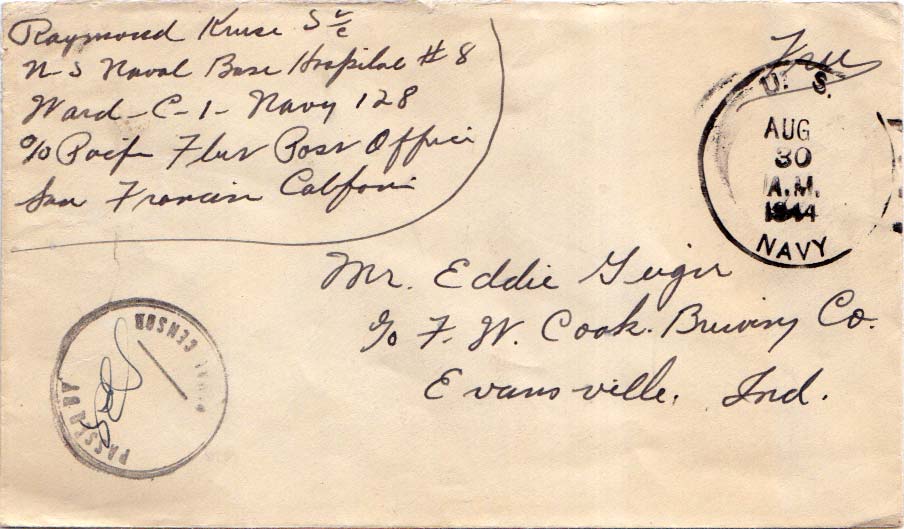 Raymond Kruse S 2/c
N-S Naval Base Hospital # 8
Ward-C-1- Navy 128
c/o Pacif Fleet Post Office
San Francisco California
Free
U. S.
AUG
30
A.M.
1944
NAVY
Mr. Eddie Geiger
c/o F. W. Cook. Brewing Co.
Evansville, Ind.
PASSED BY
CENSOR